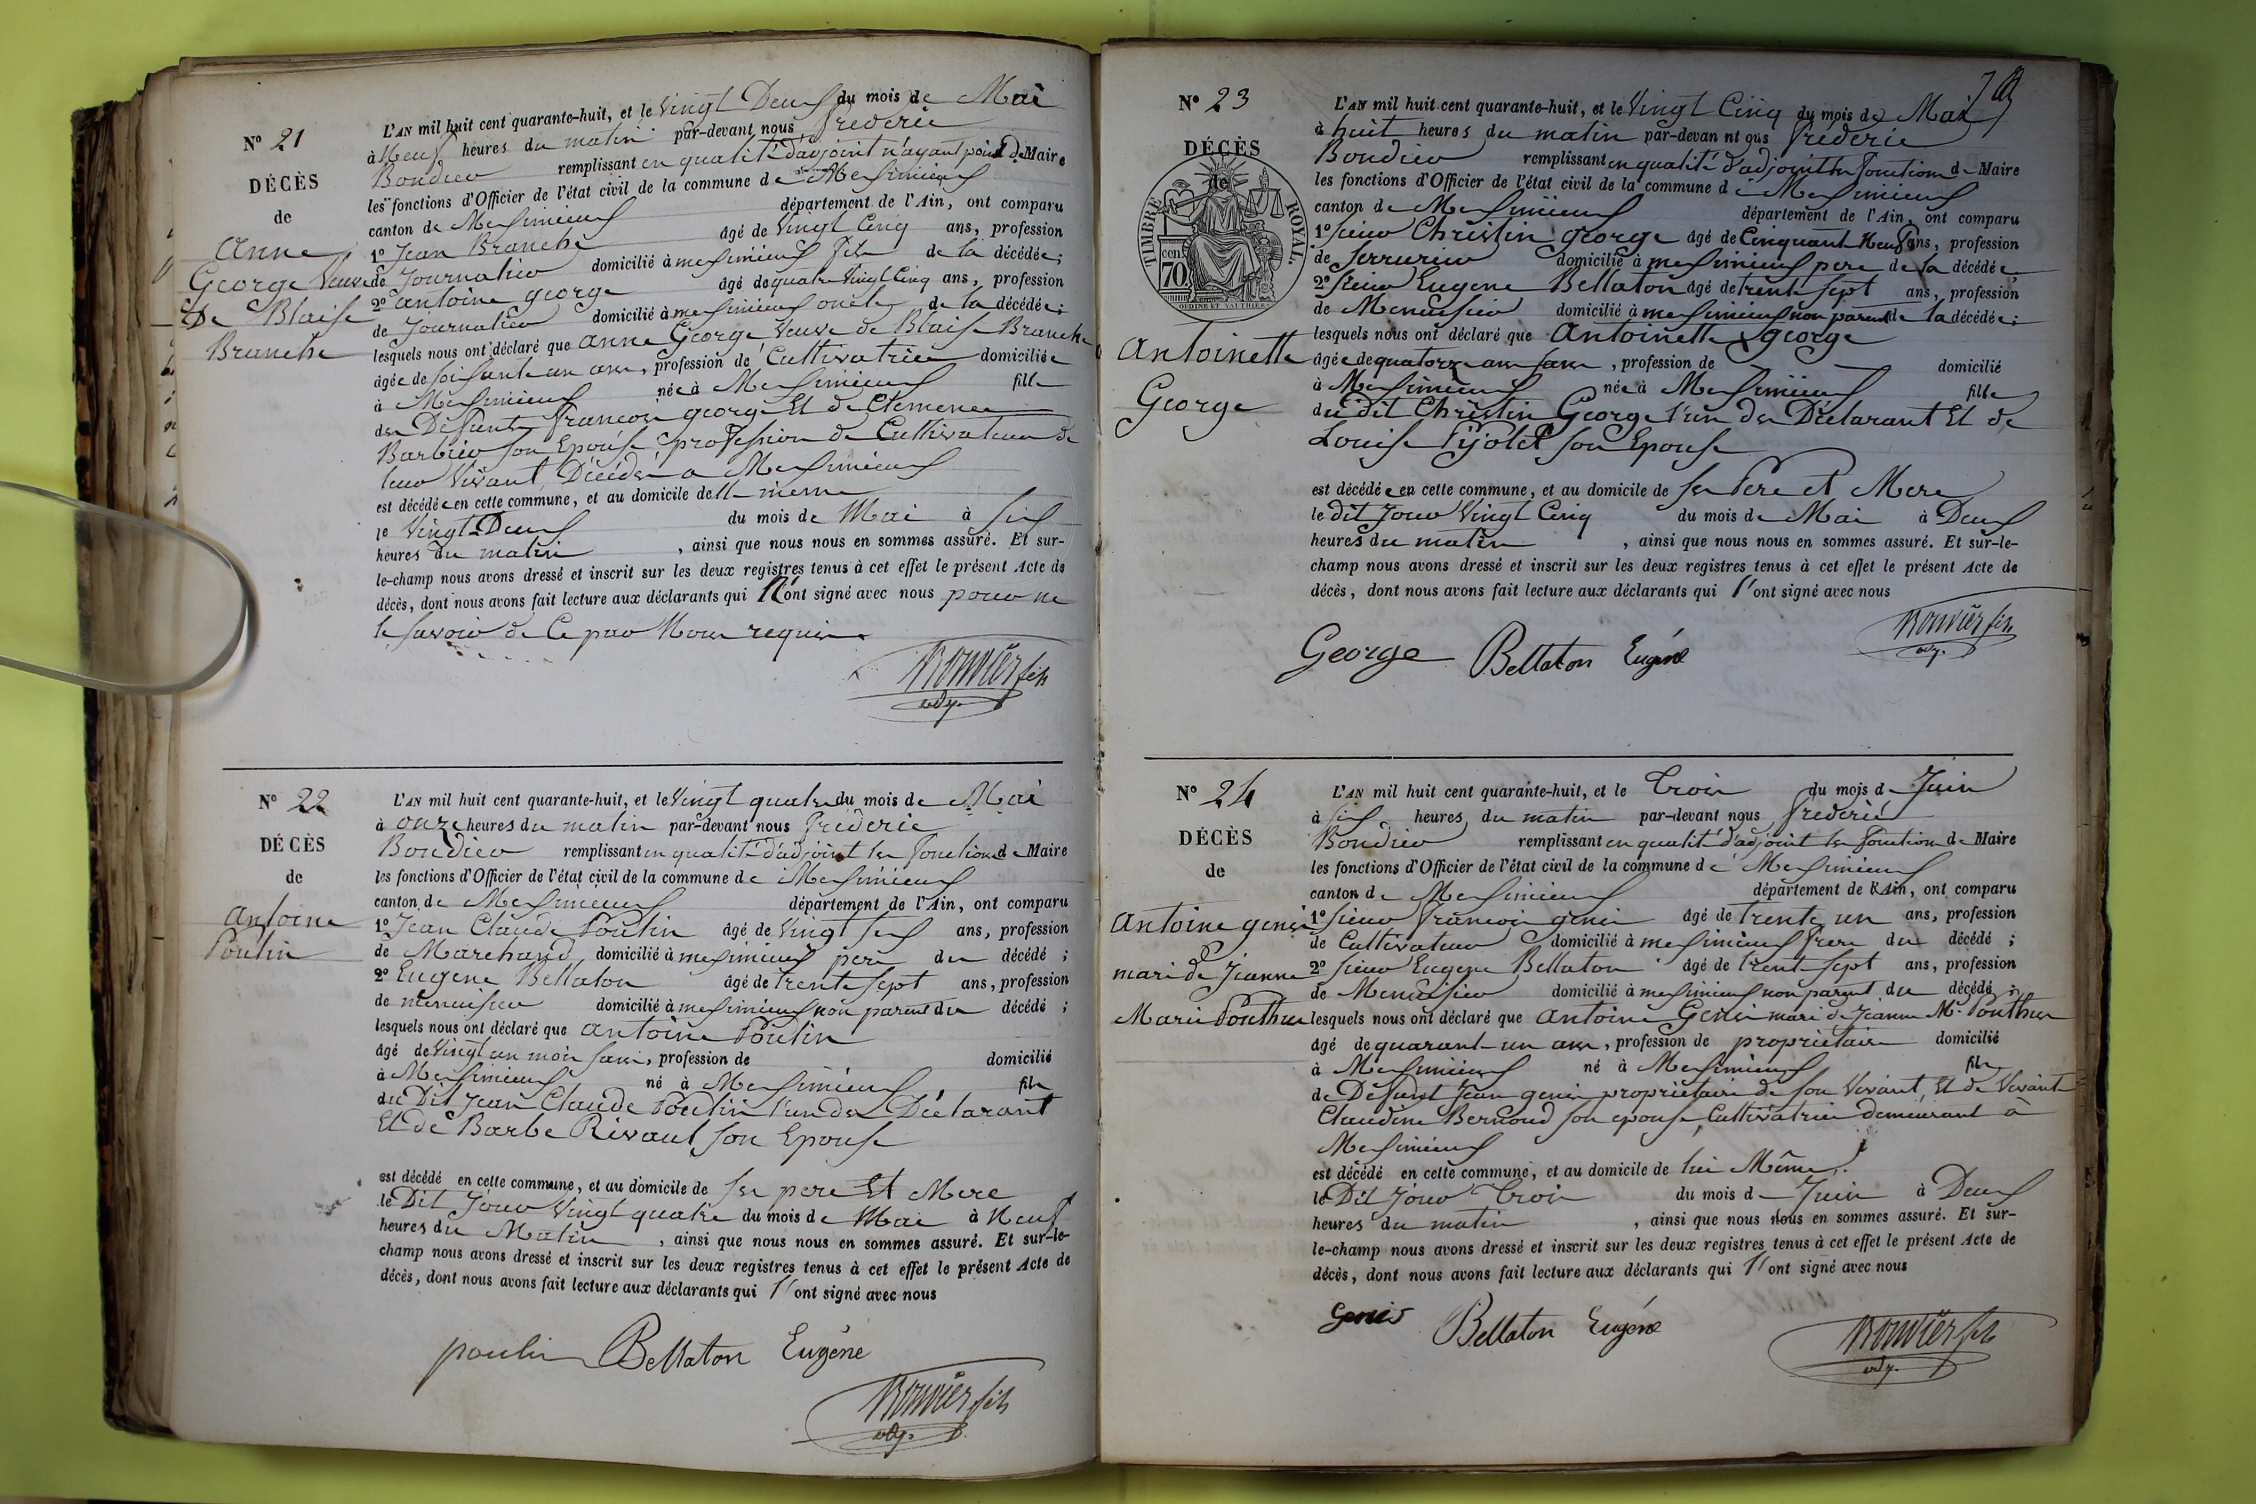 N° 21
DÉCÈS
de
Anne
George Veuve
De Blaise
Branche
L'AN mil huit cent quarante-huit, et le Vingt Deux du mois de Mai
à Neuf heures du matin par-devant nous frederic
remplissant en qualité d'adjoint n'ayant point de Maire
les fonctions d'Officier de l'état civil de la commune de Meximieux
canton de Meximieux département de l'Ain, ont comparu
1° Jean Branche âgé de Vingt Cinq ans, profession
de Journalier domicilié à meximieux fils de la décédée;
2° antoine george âgé de quatre Vingt Cinq ans, profession
de Journalier domicilié à meximieux oncle de la décédée;
lesquels nous ont déclaré que anne George Veuve de Blaise Branche
âgée de soixante un ans, profession de Cultivatrice domiciliée
à Meximieux née à Meximieux fille
des Defunts francois george Et de Clemence
Barbier son Epouse profession de Cultivateur de
leur Vivant, Décédés a Meximieux
est décédée en cette commune, et au domicile d'elle même
le Vingt Deux du mois de Mai à six
heures du matin, ainsi que nous nous en sommes assuré. Et sur-
le-champ nous avons dressé et inscrit sur les deux registres tenus à cet effet le présent Acte de
décès, dont nous avons fait lecture aux déclarants qui N'ont signé avec nous pour ne
le savoir de Ce par Nous requis
fils
adj.
N° 22
DÉCÈS
de
Antoine
Poulin
L'AN mil huit cent quarante-huit, et le Vingt quatre du mois de Mai
à onze heures du matin par-devant nous fréderic
remplissant en qualité d'adjoint les fonctions de Maire
les fonctions d'Officier de l'état civil de la commune de Meximieux
canton de Meximieux département de l'Ain, ont comparu
1° Jean Claude Poulin âgé de Vingt six ans, profession
de Marchand domicilié à meximieux pere du décédé;
2° Eugene Bellaton âgé de trente sept ans, profession
de menuisier domicilié à meximieux non parent du décédé;
lesquels nous ont déclaré que antoine Poulin
âgé de Vingt un mois sans, profession de domicilié
à Meximieux né à Meximieux fils
du Dit Jean Claude Poulin l'un des Déclarant
Et de Barbe Rivaut son Epouse
est décédé en cette commune, et au domicile de ses pere Et Mere
le Dit Jour Vingt quatre du mois de Mai à Neuf
heures du Matin, ainsi que nous nous en sommes assuré. Et sur-le-
champ nous avons dressé et inscrit sur les deux registres tenus à cet effet le présent Acte de
décès, dont nous avons fait lecture aux déclarants qui l'ont signé avec nous
poulin Bellaton Eugéne
fils
adj.
N° 23
DÉCÈS
de
TIMBRE ROYAL.
70 cen
Antoinette
George
L'AN mil huit cent quarante-huit, et le Vingt Cinq du mois de Mai
à huit heures du matin par-devan nt ous fréderic
remplissant en qualité d'adjoint les fonctions de Maire
les fonctions d'Officier de l'état civil de la commune de Meximieux
canton de Meximieux département de l'Ain, ont comparu
1° sieur Christin george âgé de Cinquante Neuf ans, profession
de serrurier domicilié à meximieux pere de la décédée
2° sieur Eugene Bellaton âgé de trente sept ans, profession
de Menuisier domicilié à meximieux non parent de la décédée;
lesquels nous ont déclaré que Antoinette george
âgée de quatorze ans sans, profession de domicilié
à Meximieux née à Meximieux fille
du dit Christin George l'un des Déclarant Et de
Louise Pijolet son Epouse
est décédée en cette commune, et au domicile de ses Pere et Mere
le dit Jour Vingt Cinq du mois de Mai à Deux
heures du matin, ainsi que nous nous en sommes assuré. Et sur-le-
champ nous avons dressé et inscrit sur les deux registres tenus à cet effet le présent Acte de
décès, dont nous avons fait lecture aux déclarants qui l'ont signé avec nous
George Bellaton Eugéne
fils
adj.
N° 24
DÉCÈS
de
Antoine genis
mari de Jeanne
Marie Ponthus
L'AN mil huit cent quarante-huit, et le Trois du mois de Juin
à six heures du matin par-devant nous frederic
remplissant en qualité d'adjoint les fonctions de Maire
les fonctions d'Officier de l'état civil de la commune de Meximieux
canton de Meximieux département de l'Ain, ont comparu
1° sieur francois genis âgé de trente un ans, profession
de Cultivateur domicilié à meximieux frere du décédé;
2° sieur Eugene Bellaton âgé de trente sept ans, profession
de Menuisier domicilié à meximieux non parent du décédé;
lesquels nous ont déclaré que antoine Genis mari de Jeanne Mie Ponthus
âgé de quarante un ans, profession de propriétaire domicilié
à Meximieux né à Meximieux fils
de Defunt Jean genis propriétaire de son Vivant, Et de Vivante
Claudine Bernoud son epouse, Cultivatrice demeurant à
Meximieux
est décédé en cette commune, et au domicile de lui Même
le Dit Jour Trois du mois de Juin à Deux
heures du matin, ainsi que nous nous en sommes assuré. Et sur-
le-champ nous avons dressé et inscrit sur les deux registres tenus à cet effet le présent Acte de
décès, dont nous avons fait lecture aux déclarants qui l'ont signé avec nous
Genis Bellaton Eugéne
fils
adj.